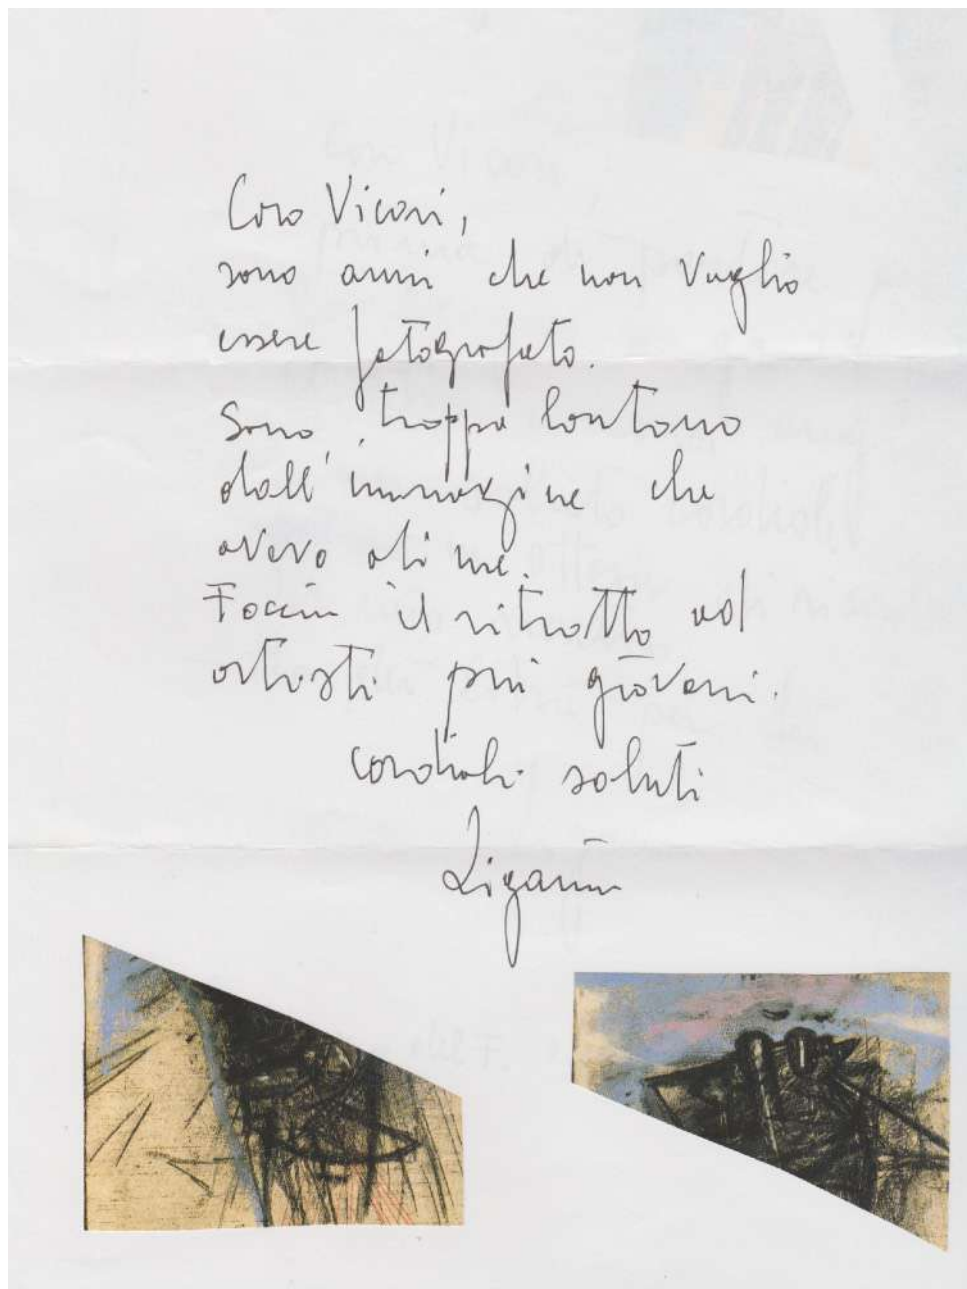 Caro Vicari,
sono anni che non voglio
essere fotografato.
Sono troppo lontano
dall'immagine che
avevo di me.
Faccia il ritratto ad
artisti più giovani.
cordiali saluti